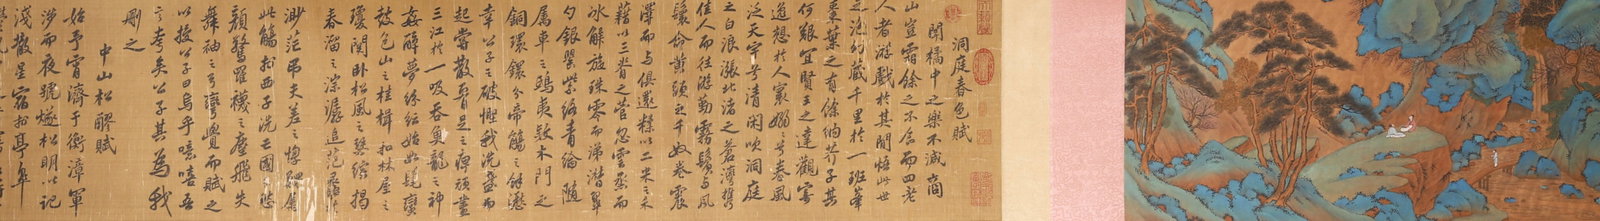 洞庭春色賦
吾聞橘中之樂不減商
山豈霜餘之不食而四老
人者游戲於其間悟此世
之泡幻藏千里於一班舉
棗葉之有餘納芥子其
何艱宜賢王之達觀寄
逸想於人寰嫋兮春風
泛天宇兮清閑吹洞庭
之白浪漲北渚之蒼灣攜
佳人而往游勤霧鬢與風
鬟命黃頭之千奴卷震
澤而與俱還糅以二米之禾
藉以三脊之菅忽雲蒸而
冰解旋珠零而涕潸翠
勺銀罌紫絡青綸隨
屬車之鴟夷款木門之
銅鐶分帝觴之餘瀝
幸公子之破慳我洗盞而
起嘗散腰足之痹頑盡
三江於一吸吞魚龍之神
姦醉夢紛紜始如髦蠻
鼓包山之桂楫扣林屋之
瓊關臥松風之瑟縮揭
春溜之淙潺追范蠡於
渺茫弔夫差之惸鰥屬
此觴於西子洗亡國之愁
顏驚羅襪之塵飛失
舞袖之弓彎覺而賦之
以授公子曰烏乎噫嘻吾
言夸矣公子其為我
刪之
中山松醪賦
始予宵濟于衡漳軍
涉而夜號燧松明以記
淺散星宿於亭皋